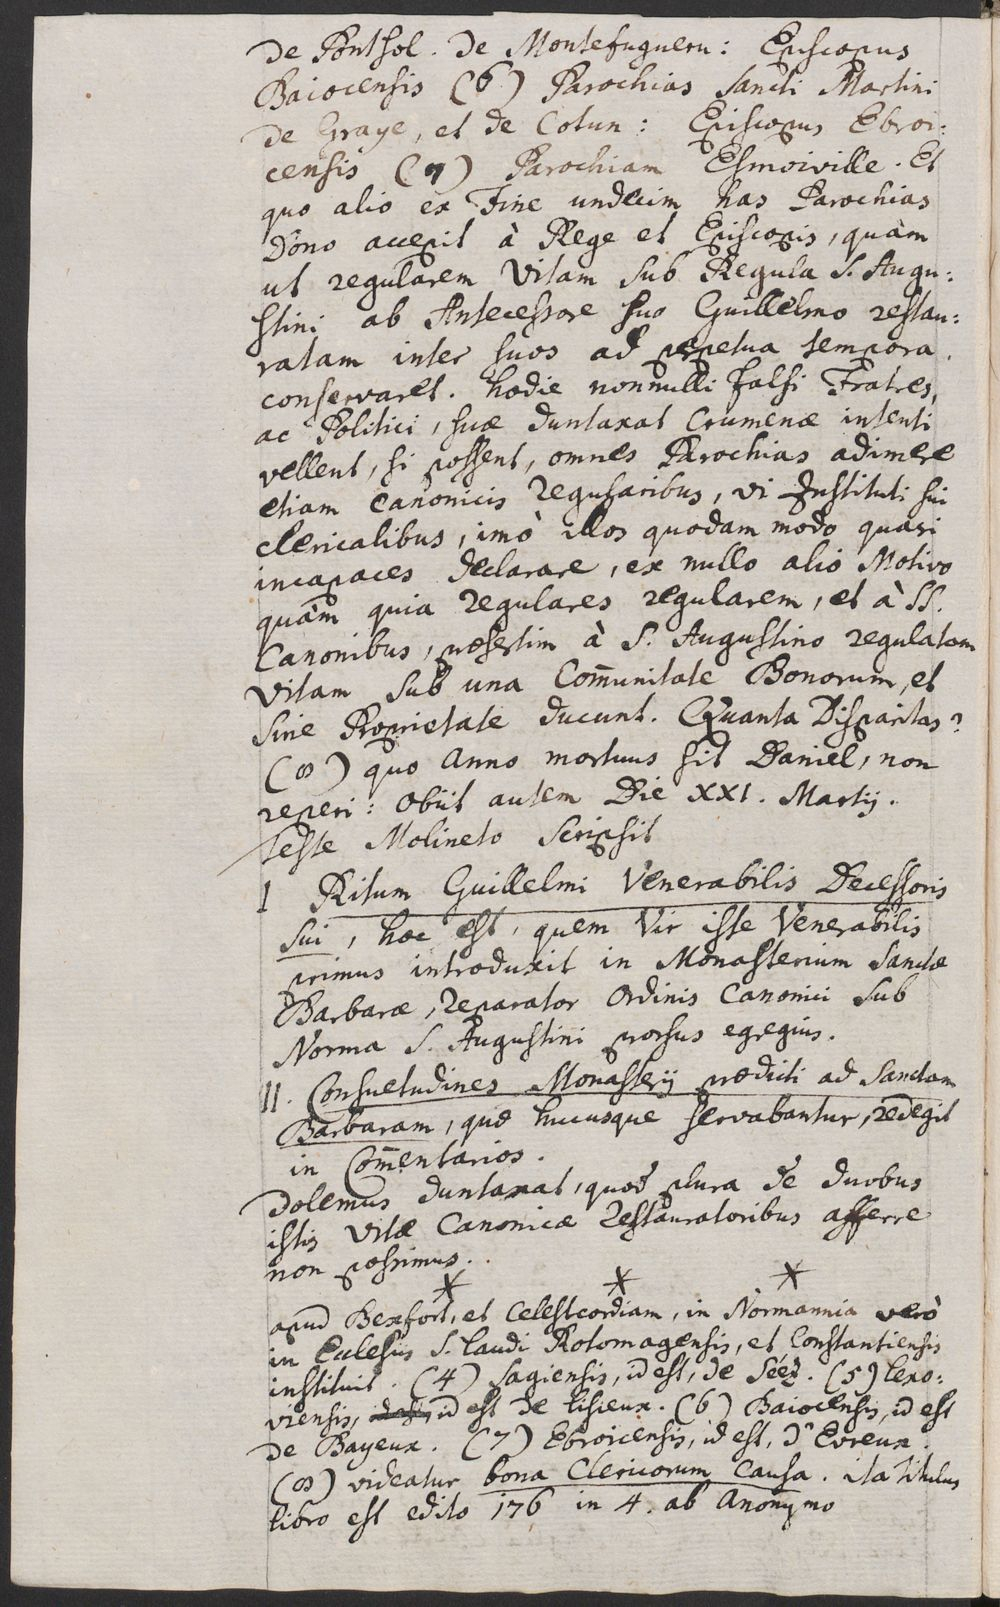 de Pontfol. de Montefugueru: Episcopus
Baiocensis (6) Parochias Sancti Martini
de Graye, et de Cotun: Episcopus Ebroi:
censis (7) Parochiam Esmoiville. Et
quo alio ex Fine undecim has Parochias
Dono accepit à Rege et Episcopis, quàm
ut regularem Vitam sub Regula S. Augu:
stini ab Antecessore suo Guillelmo restau:
ratam inter suos ad perpetua tempora
conservaret. hodie nonnulli falsi Fratres,
ac Politici, suæ duntaxat Crumenæ intenti
vellent, si possent, omnes Parochias adimere
etiam Canonicis Regularibus, vi Instituti sui
clericalibus, imò illos quodam modo quasi
incapaces declarare, ex nullo alio Motivo
quàm quia Regulares regularem, et à SS.
Canonibus, præsertim à S. Augustino regulatam
Vitam sub una Com̄unitate Bonorum, et
sine Proprietate ducunt. Quanta Disparitas?
(8) quo Anno mortuus sit Daniel, non
reperi: obiit autem Die XXI. Martij.
teste Molineto Scripsit
I Ritum Guillelmi Venerabilis Decessoris
sui, hoc est, quem Vir iste Venerabilis
primus introduxit in Monasterium Sanctæ
Barbaræ, Reparator Ordinis Canonici sub
Norma S. Augustini prorsus egregius.
II. Consuetudines Monasterij prædicti ad Sanctam
Barbaram, quæ hucusque servabantur, redegit
in Com̄entarios.
dolemus duntaxat, quod plura de duobus
istis Vitæ Canonicæ Restauratoribus afferre
non possimus.
* * *
apud Bexfort, et Celestcordiam, in Normannia verò
in Eulesiis S. Laudi Rotomagensis, et Constantiensis
instituit. (4) Sagiensis, id est, de Séez. (5) lexo:
viensis, id est de lisieux. (6) Baiocensis, id est
de Bayeux. (7) Ebroicensis, id est, d'Evreux.
(8) videatur bona Clericorum Causa. ita titulus
libro est edito 176 in 4. ab Anonymo